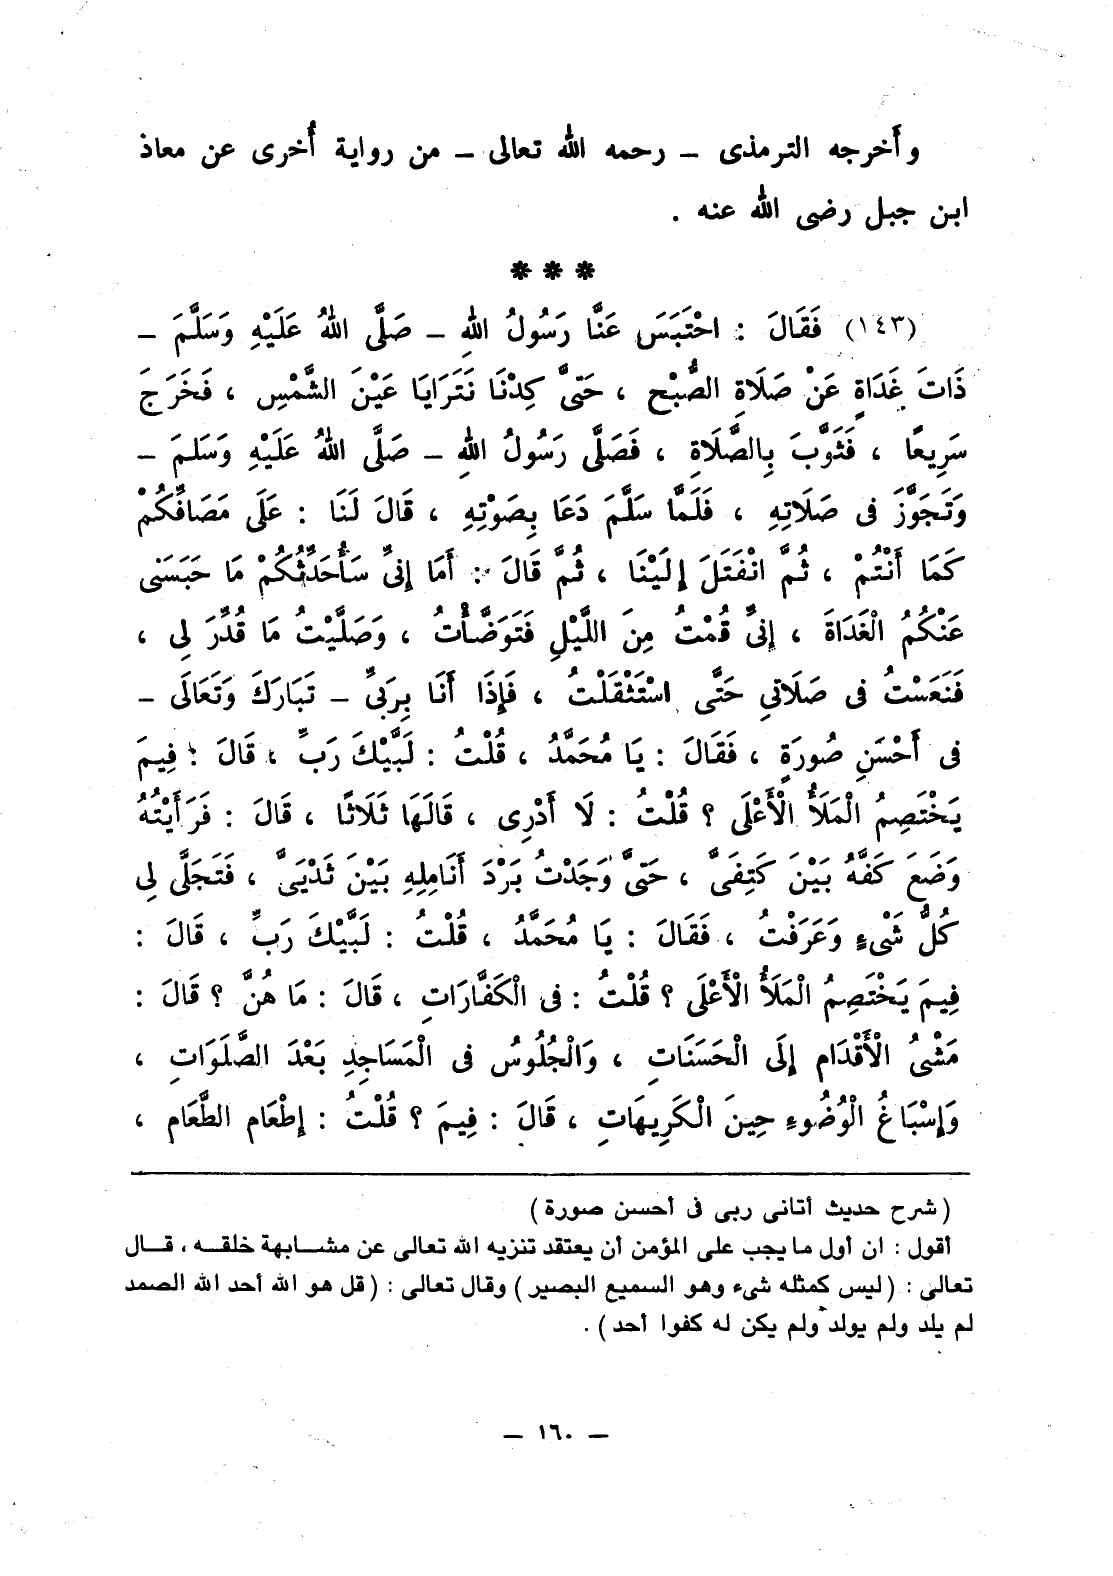 وأَخرجه الترمذى – رحمه الله تعالى – من رواية أُخرى عن معاذ
ابن جبل رضى الله عنه .
* * *
(١٤٣) فَقَالَ : احْتَبَسَ عَنَّا رَسُولُ اللهِ – صَلَّى اللهُ عَلَيْهِ وَسَلَّمَ –
ذَاتَ غَدَاةٍ عَنْ صَلَاةِ الصُّبْحِ ، حَتَّى كِدْنَا نَتَرَايَا عَيْنَ الشَّمْسِ ، فَخَرَجَ
سَرِيعًا ، فَثُوِّبَ بِالصَّلَاةِ ، فَصَلَّى رَسُولُ اللهِ – صَلَّى اللهُ عَلَيْهِ وَسَلَمَ –
وَتَجَوَّزَ فى صَلَاتِهِ ، فَلَمَّا سَلَّمَ دَعَا بِصَوْتِهِ ، قَالَ لَنَا : عَلَى مَصَافِّكُمْ
كَمَا أَنْتُمْ ، ثُمَّ انْفَتَلَ إِلَيْنَا ، ثُمَّ قَالَ : أَمَا إِنِّى سَأُحَدِّثُكُمْ مَا حَبَسَنى
عَنْكُمُ الْغَدَاةَ ، إِنِّى قُمْتُ مِنَ اللَّيْلِ فَتَوَضَّأْتُ ، وَصَلَّيْتُ مَا قُدِّرَ لِى ،
فَنَعَسْتُ فى صَلَاتِى حَتَّى اسْتَثْقَلْتُ ، فَإِذَا أَنَا بِرَبِّى – تَبَارَكَ وَتَعَالَى –
فى أَحْسَنِ صُورَةٍ ، فَقَالَ : يَا مُحَمَّدُ ، قُلْتُ : لَبَّيْكَ رَبِّ ، قَالَ : فِيمَ
يَخْتَصِمُ الْمَلَأُ الْأَعْلَى ؟ قُلْتُ : لَا أَدْرِى ، قَالَهَا ثَلَاثًا ، قَالَ : فَرَأَيْتُهُ
وَضَعَ كَفَّهُ بَيْنَ كَتِفَىَّ ، حَتَّى وَجَدْتُ بَرْدَ أَنَامِلِهِ بَيْنَ ثَدْيَىَّ ، فَتَجَلَّى لِى
كُلُّ شَىْءٍ وَعَرَفْتُ ، فَقَالَ : يَا مُحَمَّدُ ، قُلْتُ : لَبَّيْكَ رَبِّ ، قَالَ :
فِيمَ يَخْتَصِمُ الْمَلَأُ الْأَعْلَى ؟ قُلْتُ : فى الْكَفَّارَاتِ ، قَالَ : مَا هُنَّ ؟ قَالَ :
مَشْىُ الْأَقْدَامِ إِلَى الْحَسَنَاتِ ، وَالْجُلُوسُ فى الْمَسَاجِدِ بَعْدَ الصَّلَوَاتِ ،
وَإِسْبَاغُ الْوُضُوءِ حِينَ الْكَرِيهَاتِ ، قَالَ : فِيمَ ؟ قُلْتُ : إِطْعَامِ الطَّعَامِ ،
(شرح حديث أتانى ربى فى أحسن صورة)
أقول : ان أول ما يجب على المؤمن أن يعتقد تنزيه الله تعالى عن مشابهة خلقه ، قال
تعالى : (ليس كمثله شىء وهو السميع البصير) وقال تعالى : (قل هو الله أحد الله الصمد
لم يلد ولم يولد ولم يكن له كفوا أحد) .
– ١٦٠ –